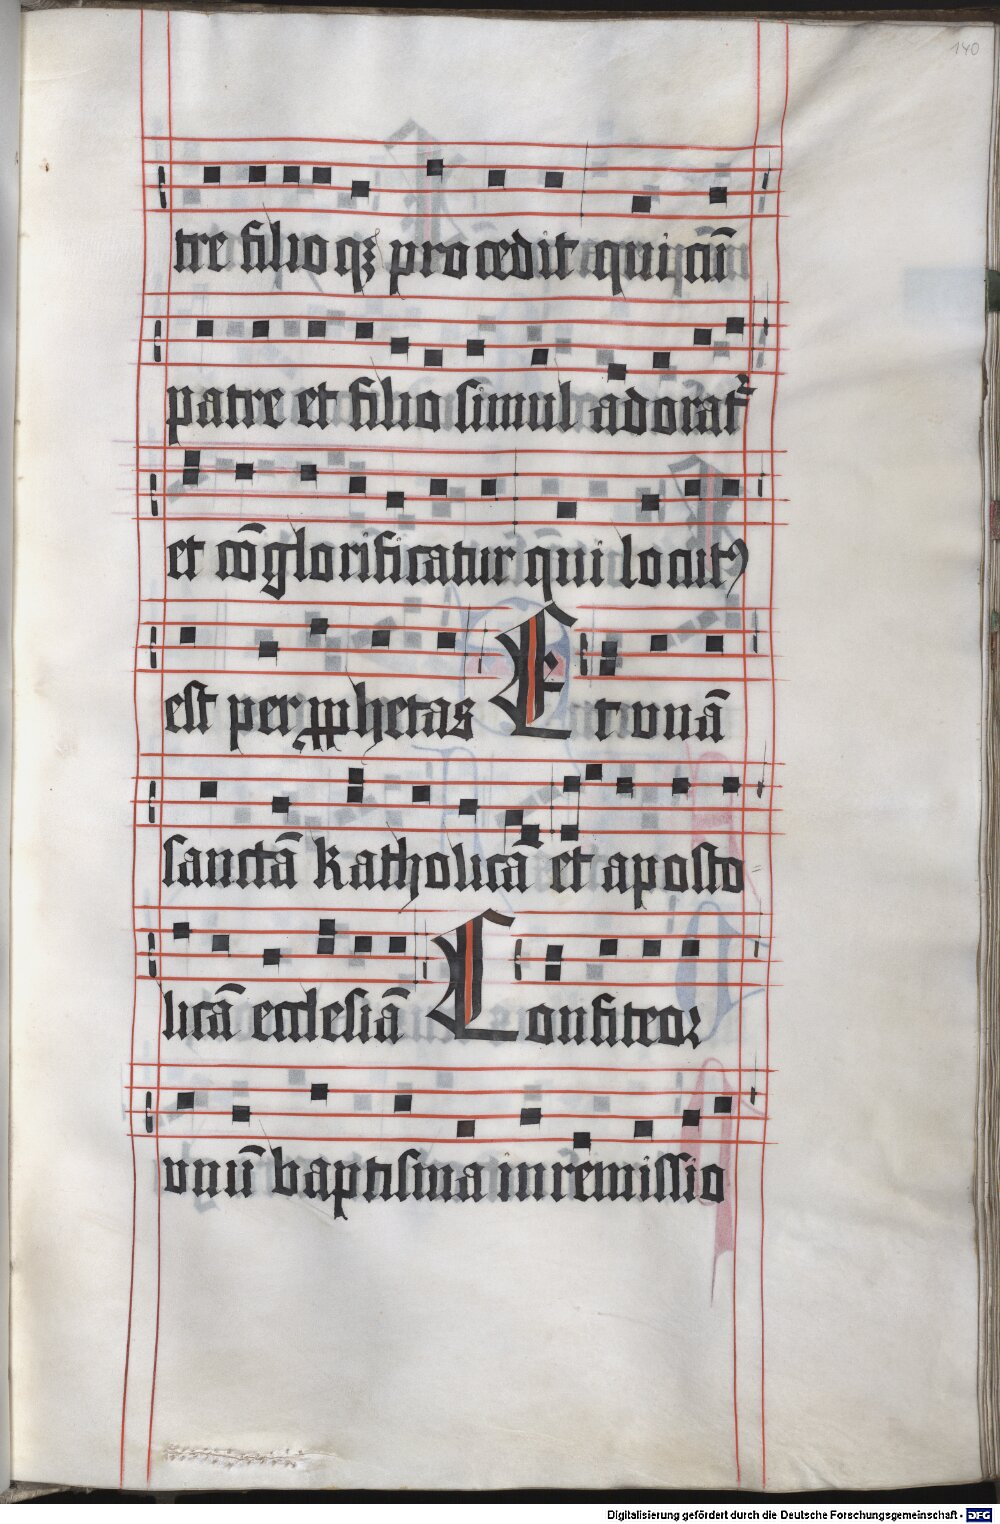 140
tre filioqꝫ procedit qui cū
patre et filio simul adorat᷑
et cōglorificatur q̄ui locutꝰ
est per ꝓphetas Et vnā
sanctā katholicā et aposto
licā ecclesiā Confiteor
vnū baptisma in remissio
Digitalisierung gefördert durch die Deutsche Forschungsgemeinschaft - DFG